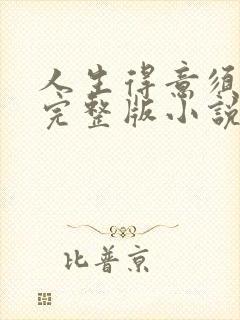 人生得意须
完整版小說
比普京